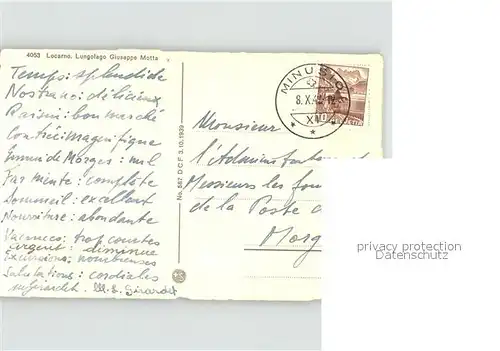 4053 Locarno. Lungolago Giuseppe Motta
Temps: splendide
Nostrano: délicieux
Raisins: bon marché
Contrée: magnifique
Ennui de Morges: nul
Far niente: complète
Sommeil: excellent
Nourriture: abondante
Vacances: trop courtes
Argent: diminue
Excursions: nombreuses
Salutations: cordiales
M. E. Girardet
No. 587 D.C.F. 3.10.1939
MINUSIO
8.X.
HELVETIA
Monsieur
Messieurs les
de la Poste
Morg
privacy protection
Datenschutz